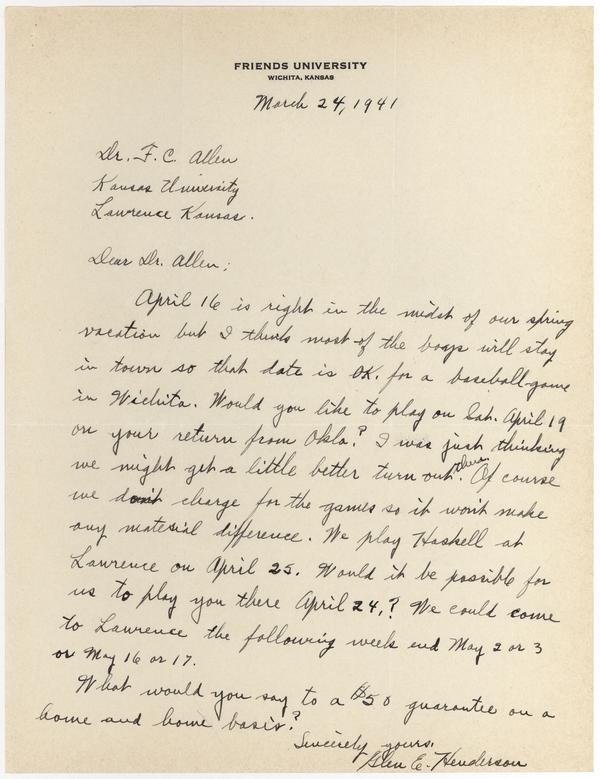 FRIENDS UNIVERSITY
WICHITA, KANSAS
March 24, 1941
Dr. F. C. Allen
Kansas University
Lawrence Kansas.
Dear Dr. Allen;
April 16 is right in the midst of our spring
vacation but I think most of the boys will stay
in town so that date is OK. for a baseball game
in Wichita. Would you like to play on Sat. April 19
on your return from Okla? I was just thinking
we might get a little better turn out then. Of course
we don't charge for the games so it won't make
any material difference. We play Haskell at
Lawrence on April 25. Would it be possible for
us to play you there April 24,? We could come
to Lawrence the following week end May 2 or 3
or May 16 or 17.
What would you say to a $50 guarantee on a
home and home basis?
Sincerely yours,
Glen E. Henderson